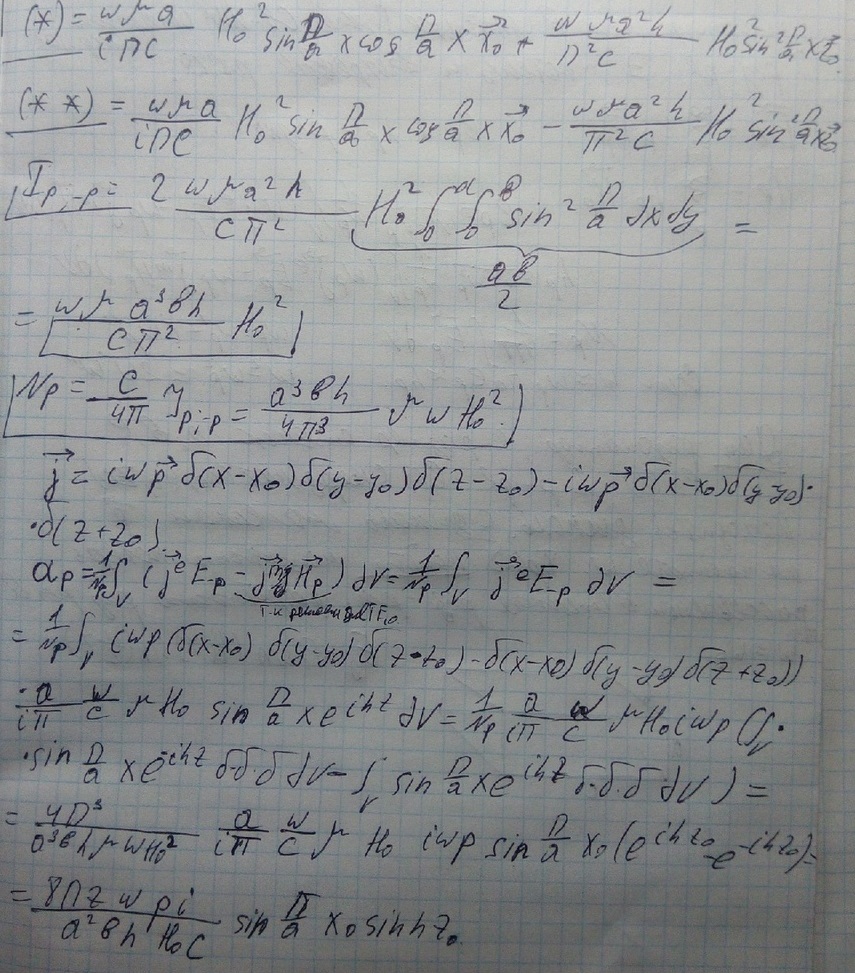 (*) = ωμa/iπc H₀² sin π/a x cos π/a x x⃗₀ + ωμa²h/π²c H₀² sin² π/a x z⃗₀
(**) = ωμa/iπc H₀² sin π/a x cos π/a x x⃗₀ − ωμa²h/π²c H₀² sin² π/a x z⃗₀
I p;-p = 2 ωμa²h/cπ² H₀² ∫₀ᵃ ∫₀ᵇ sin² π/a dx dy =
ab/2
= ωμa³bh/cπ² H₀²
Np = c/4π I p;-p = a³bh/4π³ μωH₀²
j⃗ = iωp⃗ δ(x−x₀)δ(y−y₀)δ(z−z₀) − iωp⃗ δ(x−x₀)δ(y−y₀)·
·δ(z+z₀)
ap = 1/Np ∫v (j⃗ᵉ E-p − j⃗ᵐ H⃗p) dv = 1/Np ∫v j⃗ᵉ E-p dv =
т.к решаем для TE₁₀
= 1/Np ∫v iωp (δ(x−x₀) δ(y−y₀) δ(z−z₀) − δ(x−x₀) δ(y−y₀) δ(z+z₀))
· a/iπ ω/c μ H₀ sin π/a x e^ihz dv = 1/Np a/iπ ω/c μ H₀ iωp (∫v ·
· sin π/a x e^-ihz δ·δ·δ dv − ∫v sin π/a x e^ihz δ·δ·δ dv) =
= 4π³/a³bhμωH₀² a/iπ ω/c μ H₀ iωp sin π/a x₀ (e^ihz₀ − e^-ihz₀) =
= 8π² ω p i/a²bh H₀c sin π/a x₀ sin hz₀